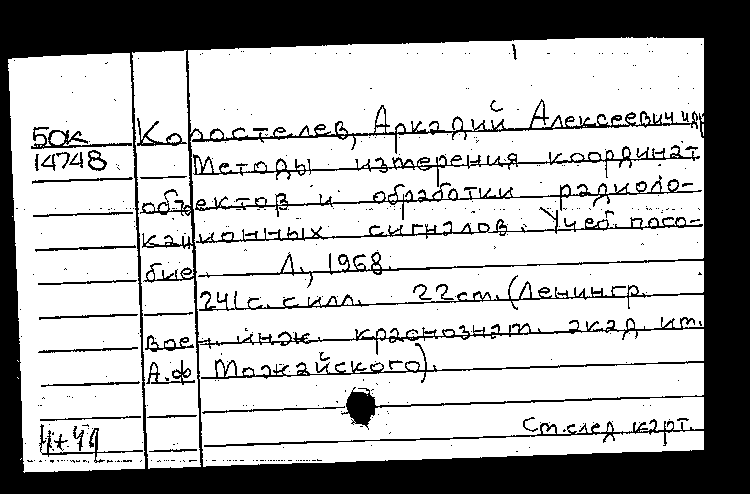 50к Коростелев, Аркадий Алексеевич и др
14748 Методы измерения координат
объектов и обработки радиоло-
кационных сигналов. Учеб. посо-
бие. Л., 1968.
241с. с илл. 22см. (Ленингр.
воен. инж. краснознам. акад. им.
А.Ф. Можайского).
Ст. след. карт.